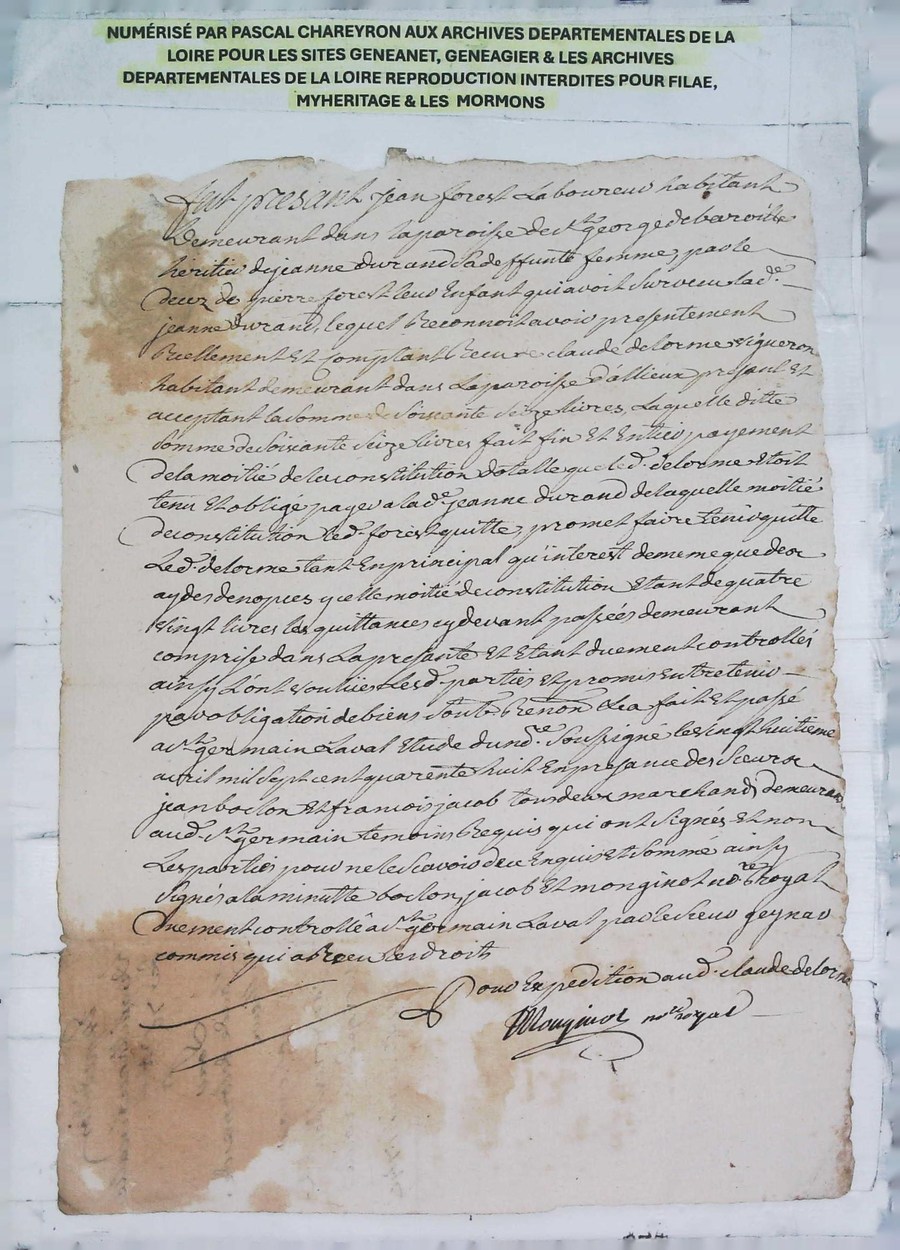 NUMÉRISÉ PAR PASCAL CHAREYRON AUX ARCHIVES DEPARTEMENTALES DE LA
LOIRE POUR LES SITES GENEANET, GENEAGIER & LES ARCHIVES
DEPARTEMENTALES DE LA LOIRE REPRODUCTION INTERDITES POUR FILAE,
MYHERITAGE & LES MORMONS
fut presant jean forest Laboureur habitant
Demeurant dans la paroisse de st george de baroille
héritier de jeanne durand sa deffunte femme, par le
decez de pierre forest leur Enfant qui avoit survecu lade
jeanne durand, lequel Reconnoit avoir presentement
Reellement Et comptant Receu de claude delorme vigneron
habitant demeurant dans La paroisse d'allieux presant Et
acceptant la somme de Soixante Seize livres, Laquelle ditte
somme de Soixante Seize Livres fait fin Et Entier payement
de la moitié de la constitution dotalle que led. delorme Etoit
tenu Et obligé payer a lade jeanne durand de laquelle moitié
de constitution led. forest quitte, promet faire tenir quitte
Led. delorme tant En principal qu'interest de meme que de
quelle moitié de constitution Etant de quatre
Vingt livres les quittances cy devant passées demeurant
comprise dans La presante Et Etant duement controllés
ainsy L'ont voulu Lesd. parties Et promis Entretenir
par obligation de biens Soub. Renon. Cla fait Et passé
a st germain Laval Etude du nore. Soussigné le vingt huitieme
avril mil Sept cent quarente huit En presance des Sieurs
jean boclon Et francois jacob tous deux marchands demeurant
aud. st germain temoins Requis qui ont Signés Et non
Les parties pour ne le Scavoir de ce Enquis Et Sommé ainsy
Signés a la minutte boclon, jacob Et monginot nore Royal
Duement controllé a st germain Laval par le Sieur geynar
commis qui a Receu les droits
Pour Expedition aud. claude delorme
Monginot nore royal